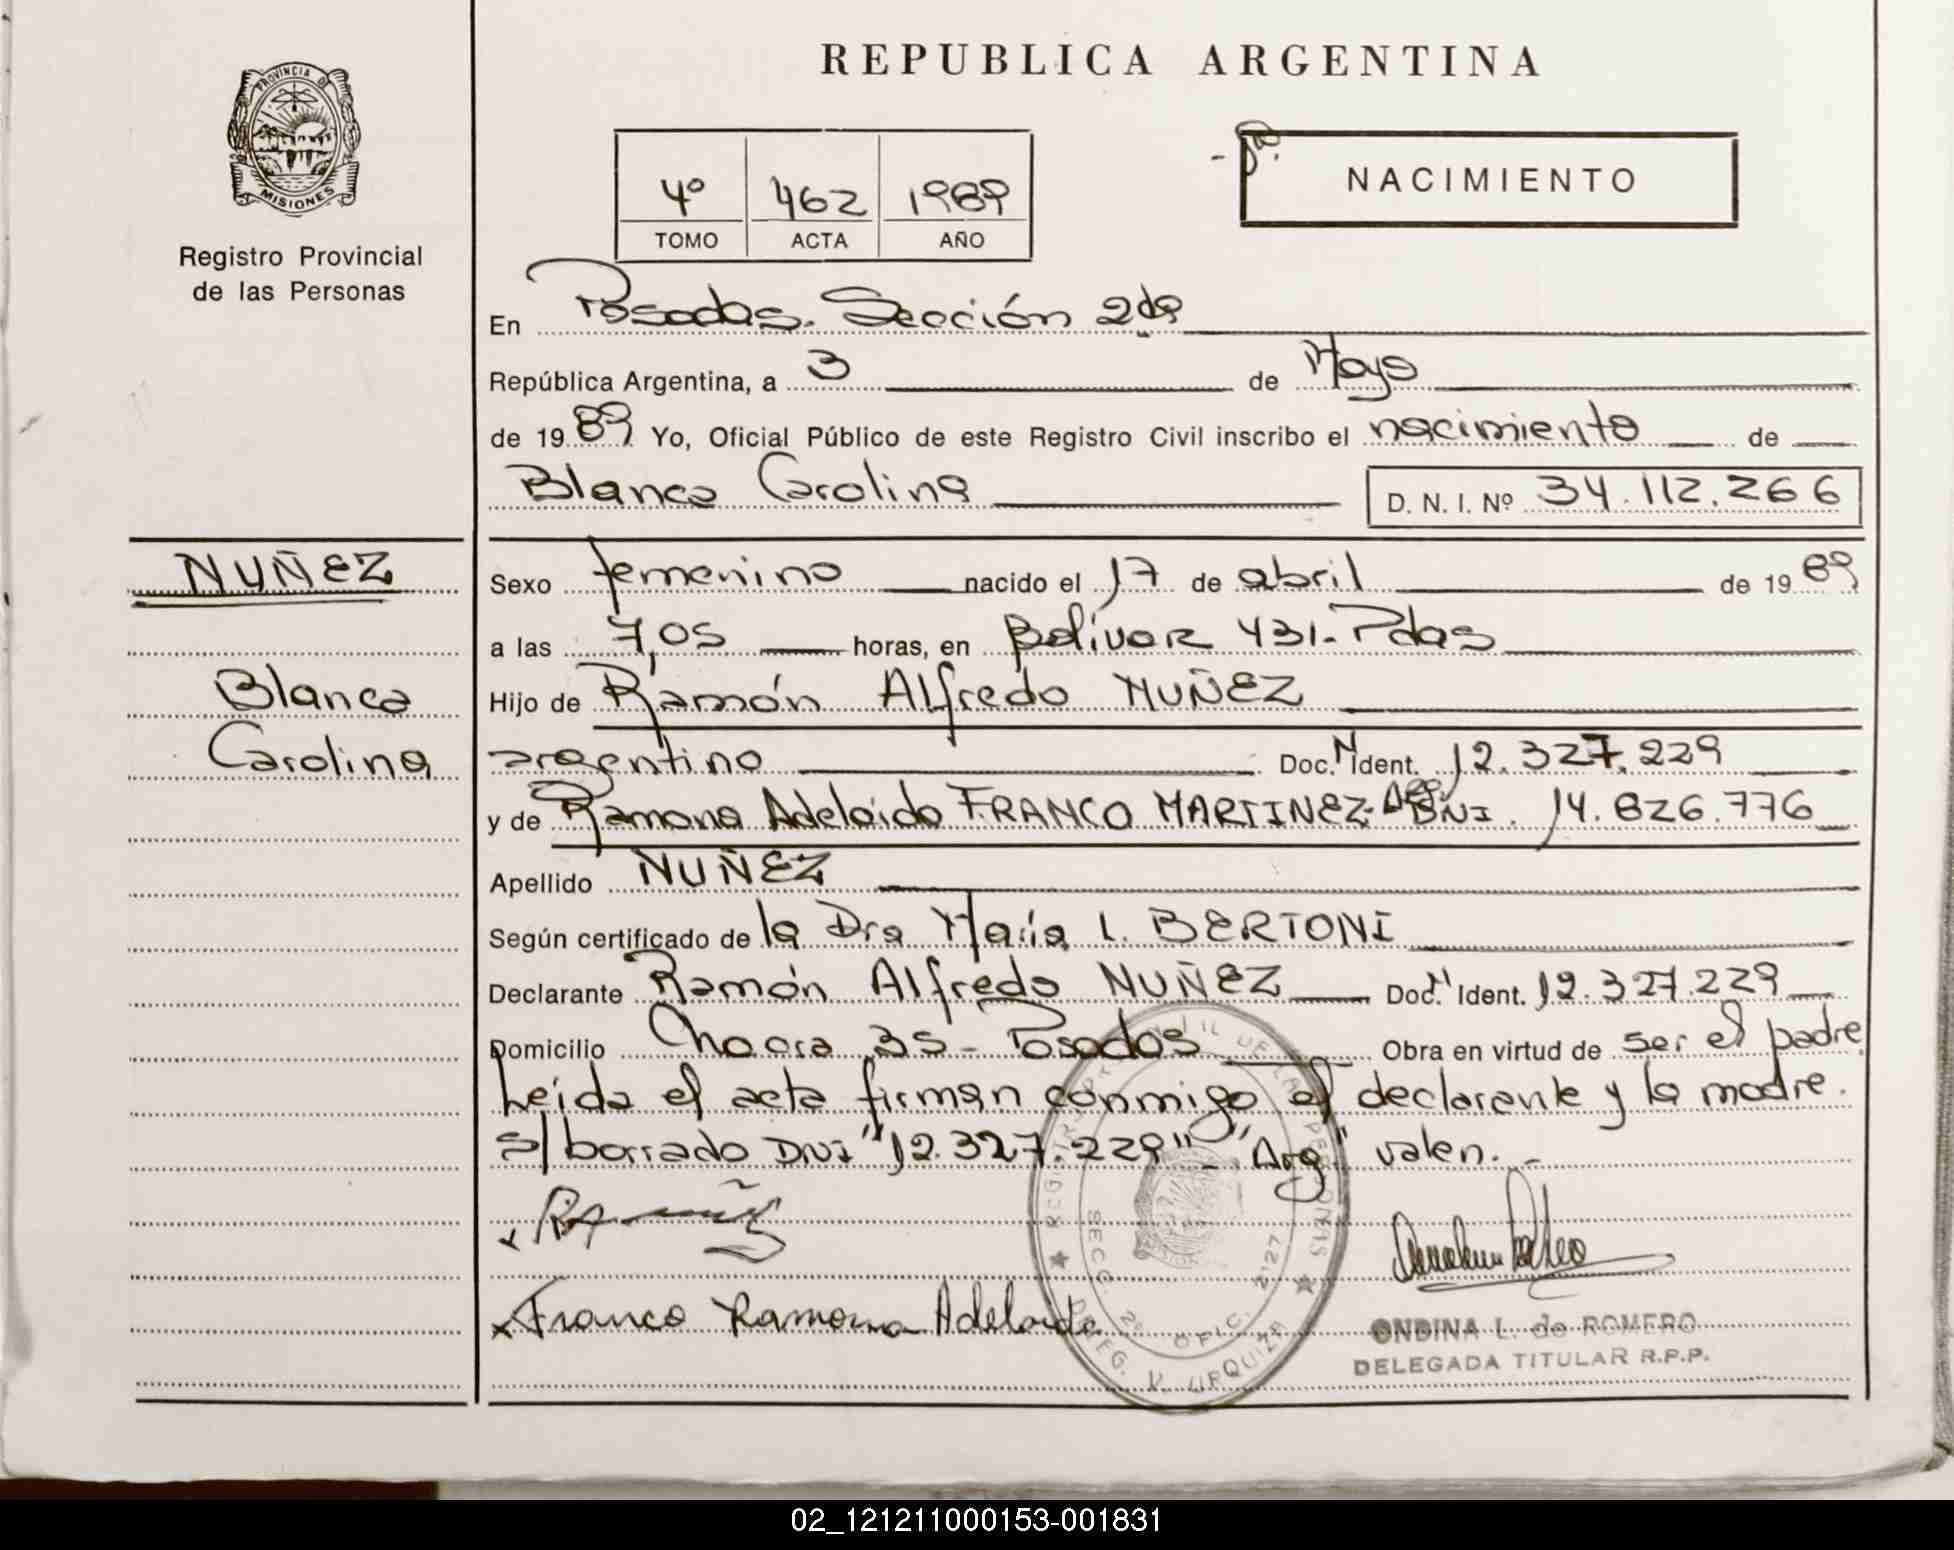 REPUBLICA ARGENTINA
PROVINCIA DE MISIONES
Registro Provincial
de las Personas
4º 462 1989
TOMO ACTA AÑO
NACIMIENTO
En Posadas. Sección 2da
República Argentina, a 3 de Mayo
de 1989 Yo, Oficial Público de este Registro Civil inscribo el nacimiento de
Blanca Carolina D. N. I. Nº 34.112.266
NUÑEZ
Blanca
Carolina
Sexo femenino nacido el 17 de abril de 1989
a las 7,05 horas, en Bolívar 431-Pdas
Hijo de Ramón Alfredo NUÑEZ
argentino Doc. N Ident. 12.327.229
y de Ramona Adelaida FRANCO MARTINEZ- Arg. DNI. 14.826.776
Apellido NUÑEZ
Según certificado de la Dra María L. BERTONI
Declarante Ramón Alfredo NUÑEZ Doc. N Ident. 12.327.229
Domicilio Chacra 35- Posadas Obra en virtud de ser el padre
Leída el acta firman conmigo el declarante y la madre.
s/borrado DNI "12.327.229" - "Arg" valen. -
Franco Ramona Adelaida
SECC. 2º OFIC. 2127
DELEG. V. URQUIZA
ONDINA L. de ROMERO
DELEGADA TITULAR R.P.P.
02_121211000153-001831